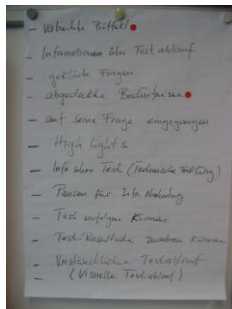 - Informationen über Testablauf
- geklärte Fragen
- abgedeckte Bedürfnisse
- auf seine Frage eingegangen
- High lights
- Info über Test (Technische
- Pausen für Info.
- Test verfolgen können
- Test-Resultate können
- Verständlicher Testablauf
(Visuelle Testablauf)